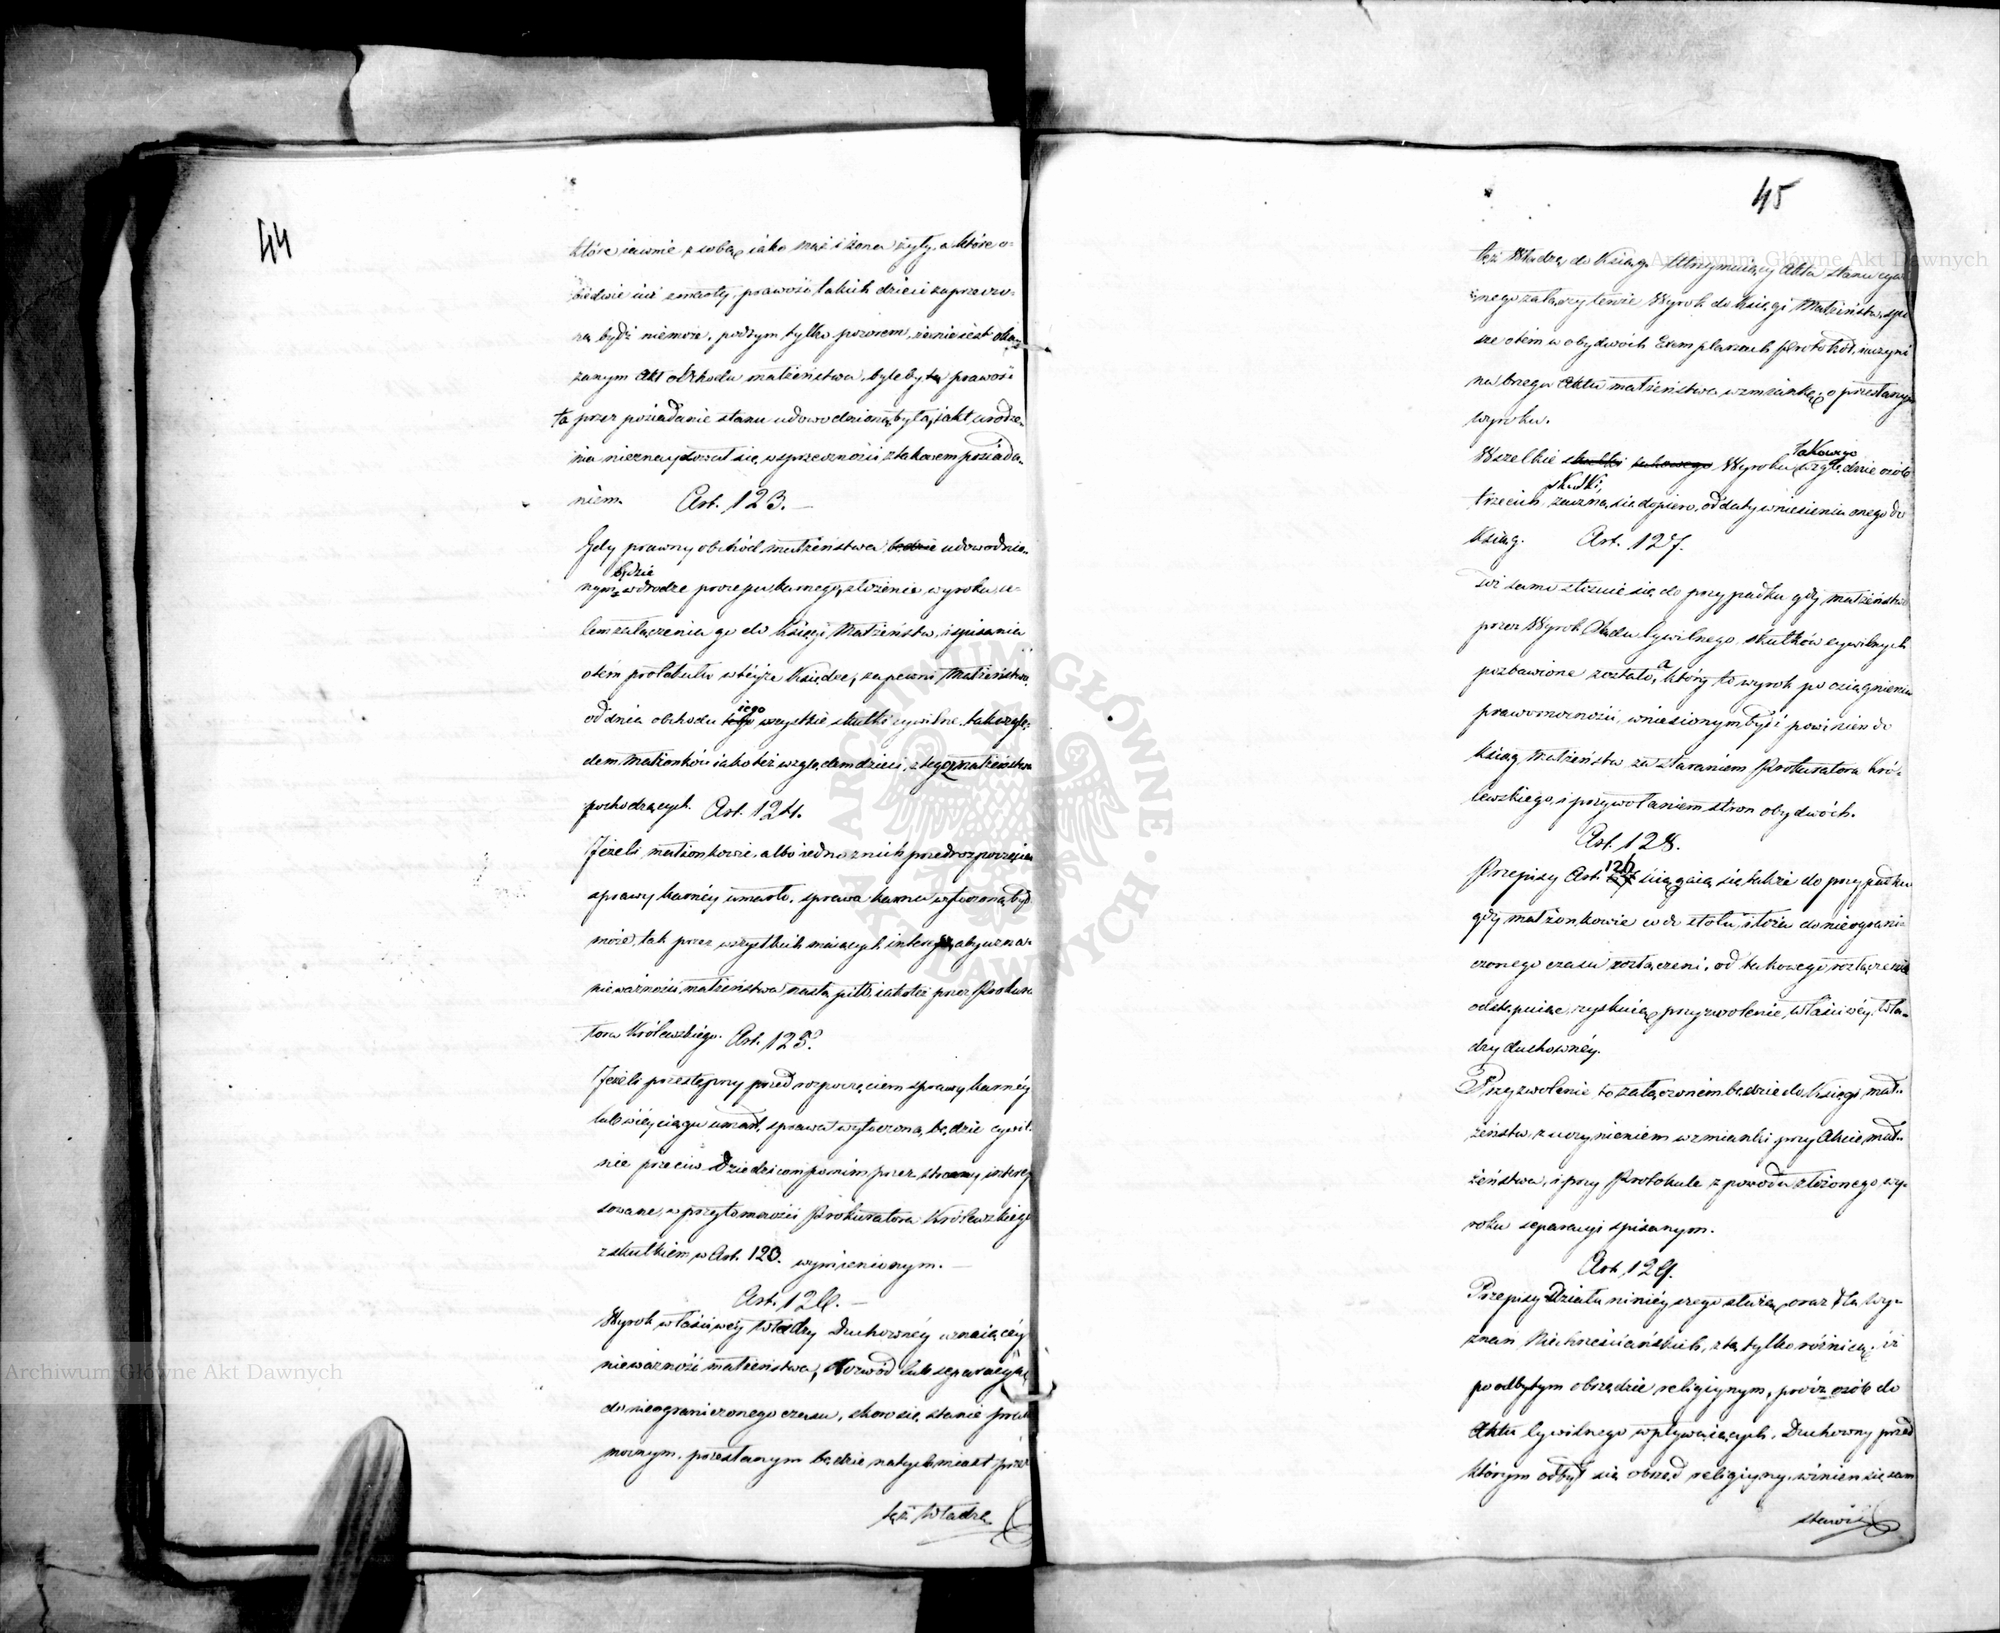 44
które iawnie z sobą iako mąż i żona żyły, a które o-
biedwie iuż zmarły, prawość takich dzieci zaprzeczo-
ną bydź niemoże, pod tym tylko pozorem, że nie iest oka-
zanym Akt obchodu małżeństwa, byleby ta prawość
ta przez posiadanie stanu udowodnioną była, i akt urodze-
nia nieznaydował się w sprzeczności z takowem posiada-
niem. Art. 123. —
Gdy prawny obchód małżeństwa będzie udowodnio-
będzie
nym w drodze processu karnego, złożenie wyroku ce-
lem załączenia go do Księgi Małżeństw, i spisania
otém protokułu w téyże Księdze, zapewni Małżeństwu
od dnia obchodu tego iego wszystkie skutki cywilne, tak wzglę-
dem Małżonków iako też względem dzieci, z tegoż małżeństwa
pochodzących. Art. 124.
Jeżeli małżonkowie, albo iedno z nich przed rozpoczęciem
sprawy karnéy umarło, sprawa karna wytoczoną bydź
może, tak przez wszystkich maiących interes, aby uzna-
nie ważności małżeństwa nastąpiło, iakoteż przez Prokura-
tora Królewskiego. Art. 125.
Jeżeli przestępny przed rozpoczęciem sprawy karnéy
lub w iéy ciągu umarł, sprawa wytoczona będzie cywil-
nie przeciw Dziedzicom po nim przez strony interes-
sowane, w przytomności Prokuratora Królewskiego
z skutkiem w Art. 123. wymienionym. —
Art. 126. —
Wyrok właściwéy Władzy Duchownéy uznaiącéy
nieważność małżeństwa, Rozwód lub separacyią
do nieograniczonego czasu, skoro się stanie prawo-
mocnym, przesłanym będzie natychmiast przez
tęż Władzę
45
tęż Władzę do Ksiąg. Utrzymuiący Akta stanu cywil-
nego załączy tenże Wyrok do Księgi Małżeństw, spi-
sze otém w obydwóch Exemplarzach Protokół, i uczyni
na brzegu Aktu małżeństwa wzmiankę o przesłanym
wyroku.
Wszelkie skutki takowego Wyroku takowego względnie osób
trzecich, skutki, zaczną się dopiero, od daty wniesienia onego do
Ksiąg. Art. 127.
Toż samo stosuie się do przypadku gdy małżeństwo
przez Wyrok Sądu Cywilnego skutków cywilnych
pozbawione zostało, a który to wyrok po osiągnieniu
prawomocności, wniesionym bydź powinien do
Ksiąg Małżeństw za staraniem Prokuratora Kró-
lewskiego, i przywołaniem stron obydwóch.
Art. 128.
Przepisy Art. 126 ściągaią się także do przypadku
gdy małżonkowie co do stołu i łoża do nieograni-
czonego czasu rozłączeni, od takowego rozłączenia
odstępuiąc, zyskuią przyzwolenie, właściwéy Wła-
dzy duchownéy.
Przyzwolenie to załączoném będzie do Księgi mał-
żeństw, z uczynieniem wzmianki przy Akcie mał-
żeństwa, i przy Protokule z powodu złożonego wy-
roku separacyi spisanym.
Art. 129.
Przepisy Działu ninieyszego służą oraz dla Wy-
znań Niechrześciańskich, z tą tylko różnicą, iż
po odbytym obrzędzie religiynym, prócz osób do
Aktu Cywilnego wpływaiących, Duchowny przed
którym odbył się obrzęd religiyny, winien się zam
stawić
Archiwum Główne Akt Dawnych
Archiwum Główne Akt Dawnych
ARCHIWUM GŁÓWNE AKT DAWNYCH